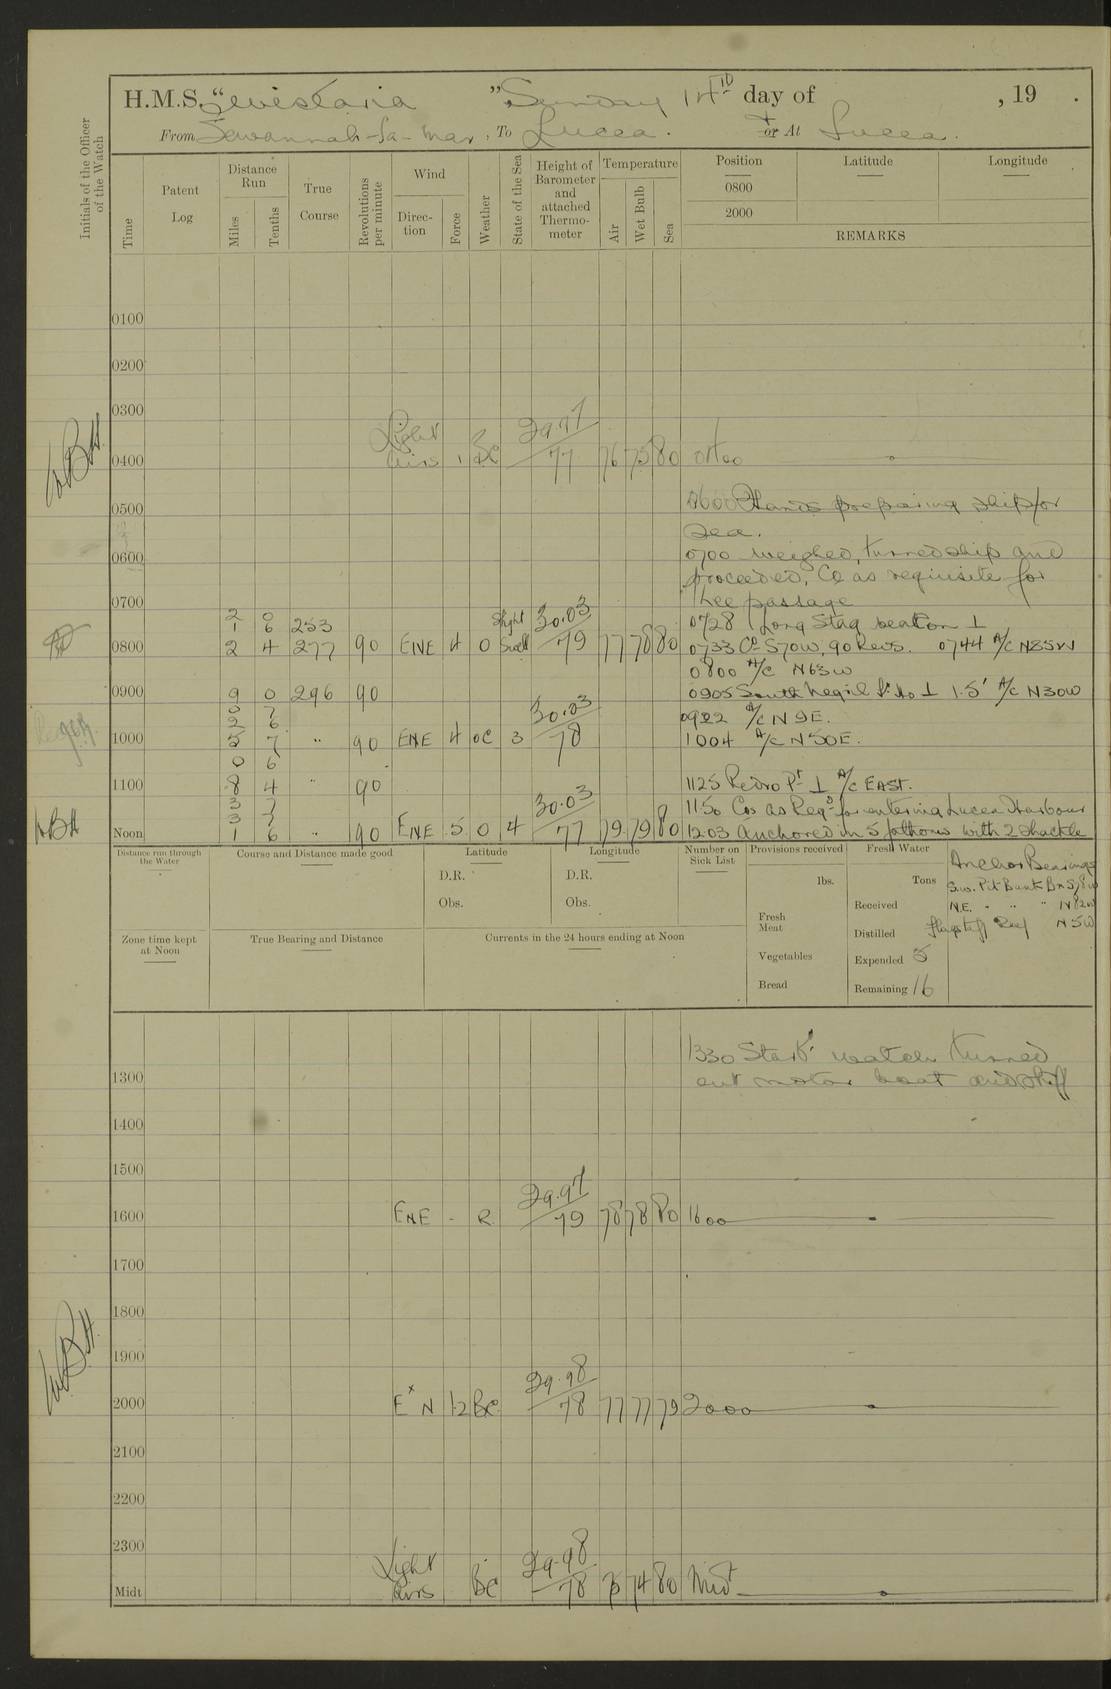 H.M.S. "Wistaria" Sunday 14th day of , 19 .
From Savannah-la-Mar, To Lucea. or At Lucea.
Initials of the Officer of the Watch
Time
Patent Log
Distance Run
Miles
Tenths
True Course
Revolutions per minute
Wind
Direction
Force
Weather
State of the Sea
Height of Barometer and attached Thermometer
Temperature
Air
Wet Bulb
Sea
Position Latitude Longitude
0800
2000
REMARKS
0100
0200
0300
0400 Light airs 1 BC 29.97 77 76 75 80 0400
0500 0600 Hands preparing ship for
sea.
0600 0700 Weighed, turned ship and
proceeded, Co as requisite for
0700 the passage
2 0
1 6 253 Slight 30.03 0728 Long Stag beacon ⊥
0800 2 4 277 90 ENE 4 O Swell 79 77 78 80 0733 Co S70W, 90 Revs. 0744 A/C N85W
0800 A/C N63W
0900 9 0 296 90 0905 South Negril Pt ⊥ 1.5' A/C N30W
3 7
2 6 30.03 0922 A/C N9E.
1000 5 7 " 90 ENE 4 OC 3 78 1004 A/C N50E.
0 6
1100 8 4 " 90 1125 Pedro Pt ⊥ A/C EAST.
3 7
3 2 30.03 1150 Cos as Reqd for entering Lucea Harbour
Noon 1 6 " 90 ENE 5 O 4 77 79 79 80 1203 Anchored in 5 fathoms with 2 shackle
WBH
Distance run through the Water
Course and Distance made good
Latitude
D.R.
Obs.
Longitude
D.R.
Obs.
Number on Sick List
Provisions received
lbs.
Fresh Meat
Vegetables
Bread
Fresh Water
Tons
Received
Distilled
Expended 5
Remaining 16
Anchor Bearings
S.W. Pit Bank Bn
N.E. " " " N82W
Flagstaff Reef N5W
Zone time kept at Noon
True Bearing and Distance
Currents in the 24 hours ending at Noon
1330 Starbd watch turned
1300 out motor boat and skiff
1400
1500
1600 ENE - R 29.97 79 78 78 80 1600
1700
1800
1900
2000 E x N 1-2 BC 29.98 78 77 77 79 2000
2100
2200
2300
Midt Light airs BC 29.98 78 75 74 80 Midt
WBH